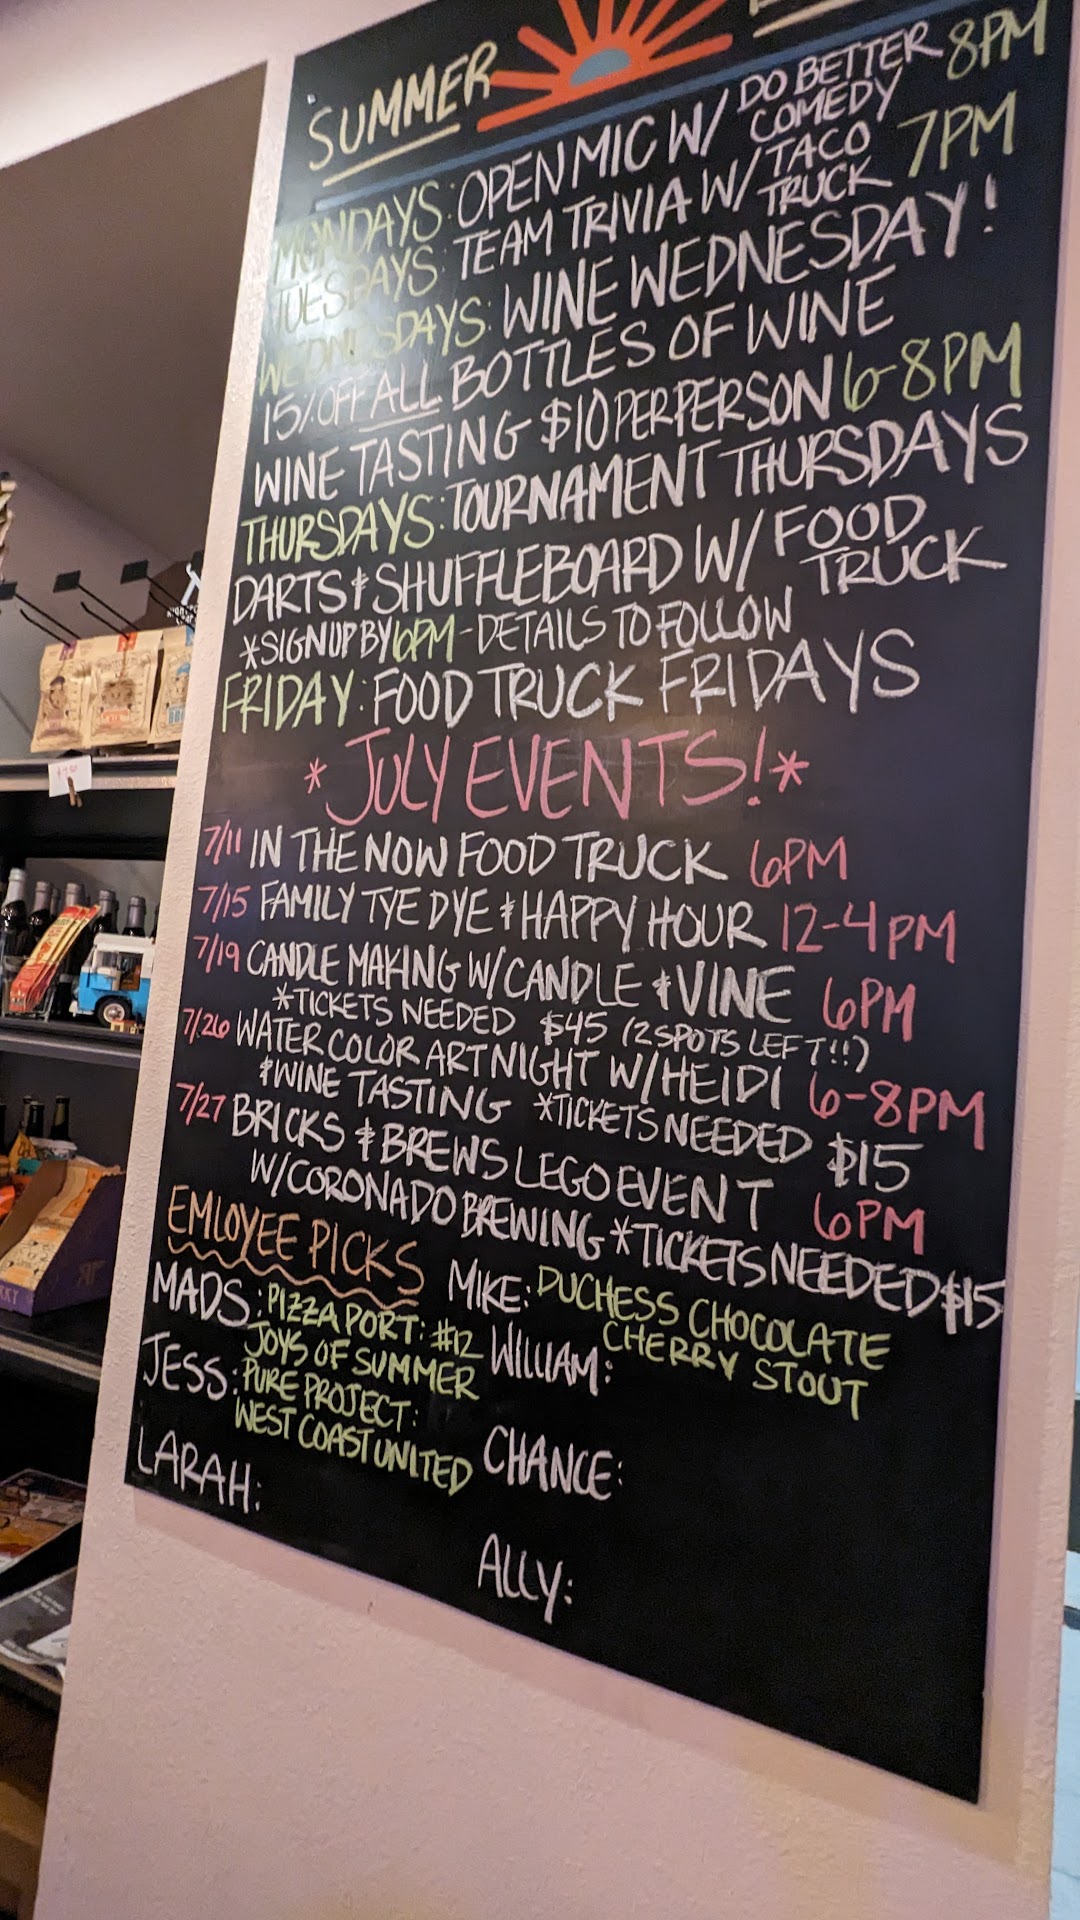 SUMMER
MONDAYS: OPEN MIC W/ DO BETTER COMEDY 8PM
TUESDAYS: TEAM TRIVIA W/ TACO TRUCK 7PM
WEDNESDAYS: WINE WEDNESDAY!
15% OFF ALL BOTTLES OF WINE
WINE TASTING $10 PER PERSON 6-8PM
THURSDAYS: TOURNAMENT THURSDAYS
DARTS & SHUFFLEBOARD W/ FOOD TRUCK
*SIGN UP BY 6PM - DETAILS TO FOLLOW
FRIDAY: FOOD TRUCK FRIDAYS
* JULY EVENTS! *
7/11 IN THE NOW FOOD TRUCK 6PM
7/15 FAMILY TYE DYE & HAPPY HOUR 12-4PM
7/19 CANDLE MAKING W/ CANDLE & VINE 6PM
*TICKETS NEEDED $45 (2 SPOTS LEFT!!)
7/26 WATER COLOR ART NIGHT W/ HEIDI 6-8PM
& WINE TASTING *TICKETS NEEDED $15
7/27 BRICKS & BREWS LEGO EVENT 6PM
W/ CORONADO BREWING *TICKETS NEEDED $15
EMLOYEE PICKS
MADS: PIZZA PORT: #12
JOYS OF SUMMER
JESS: PURE PROJECT:
WEST COAST UNITED
LARAH:
MIKE: DUCHESS CHOCOLATE
CHERRY STOUT
WILLIAM:
CHANCE:
ALLY: